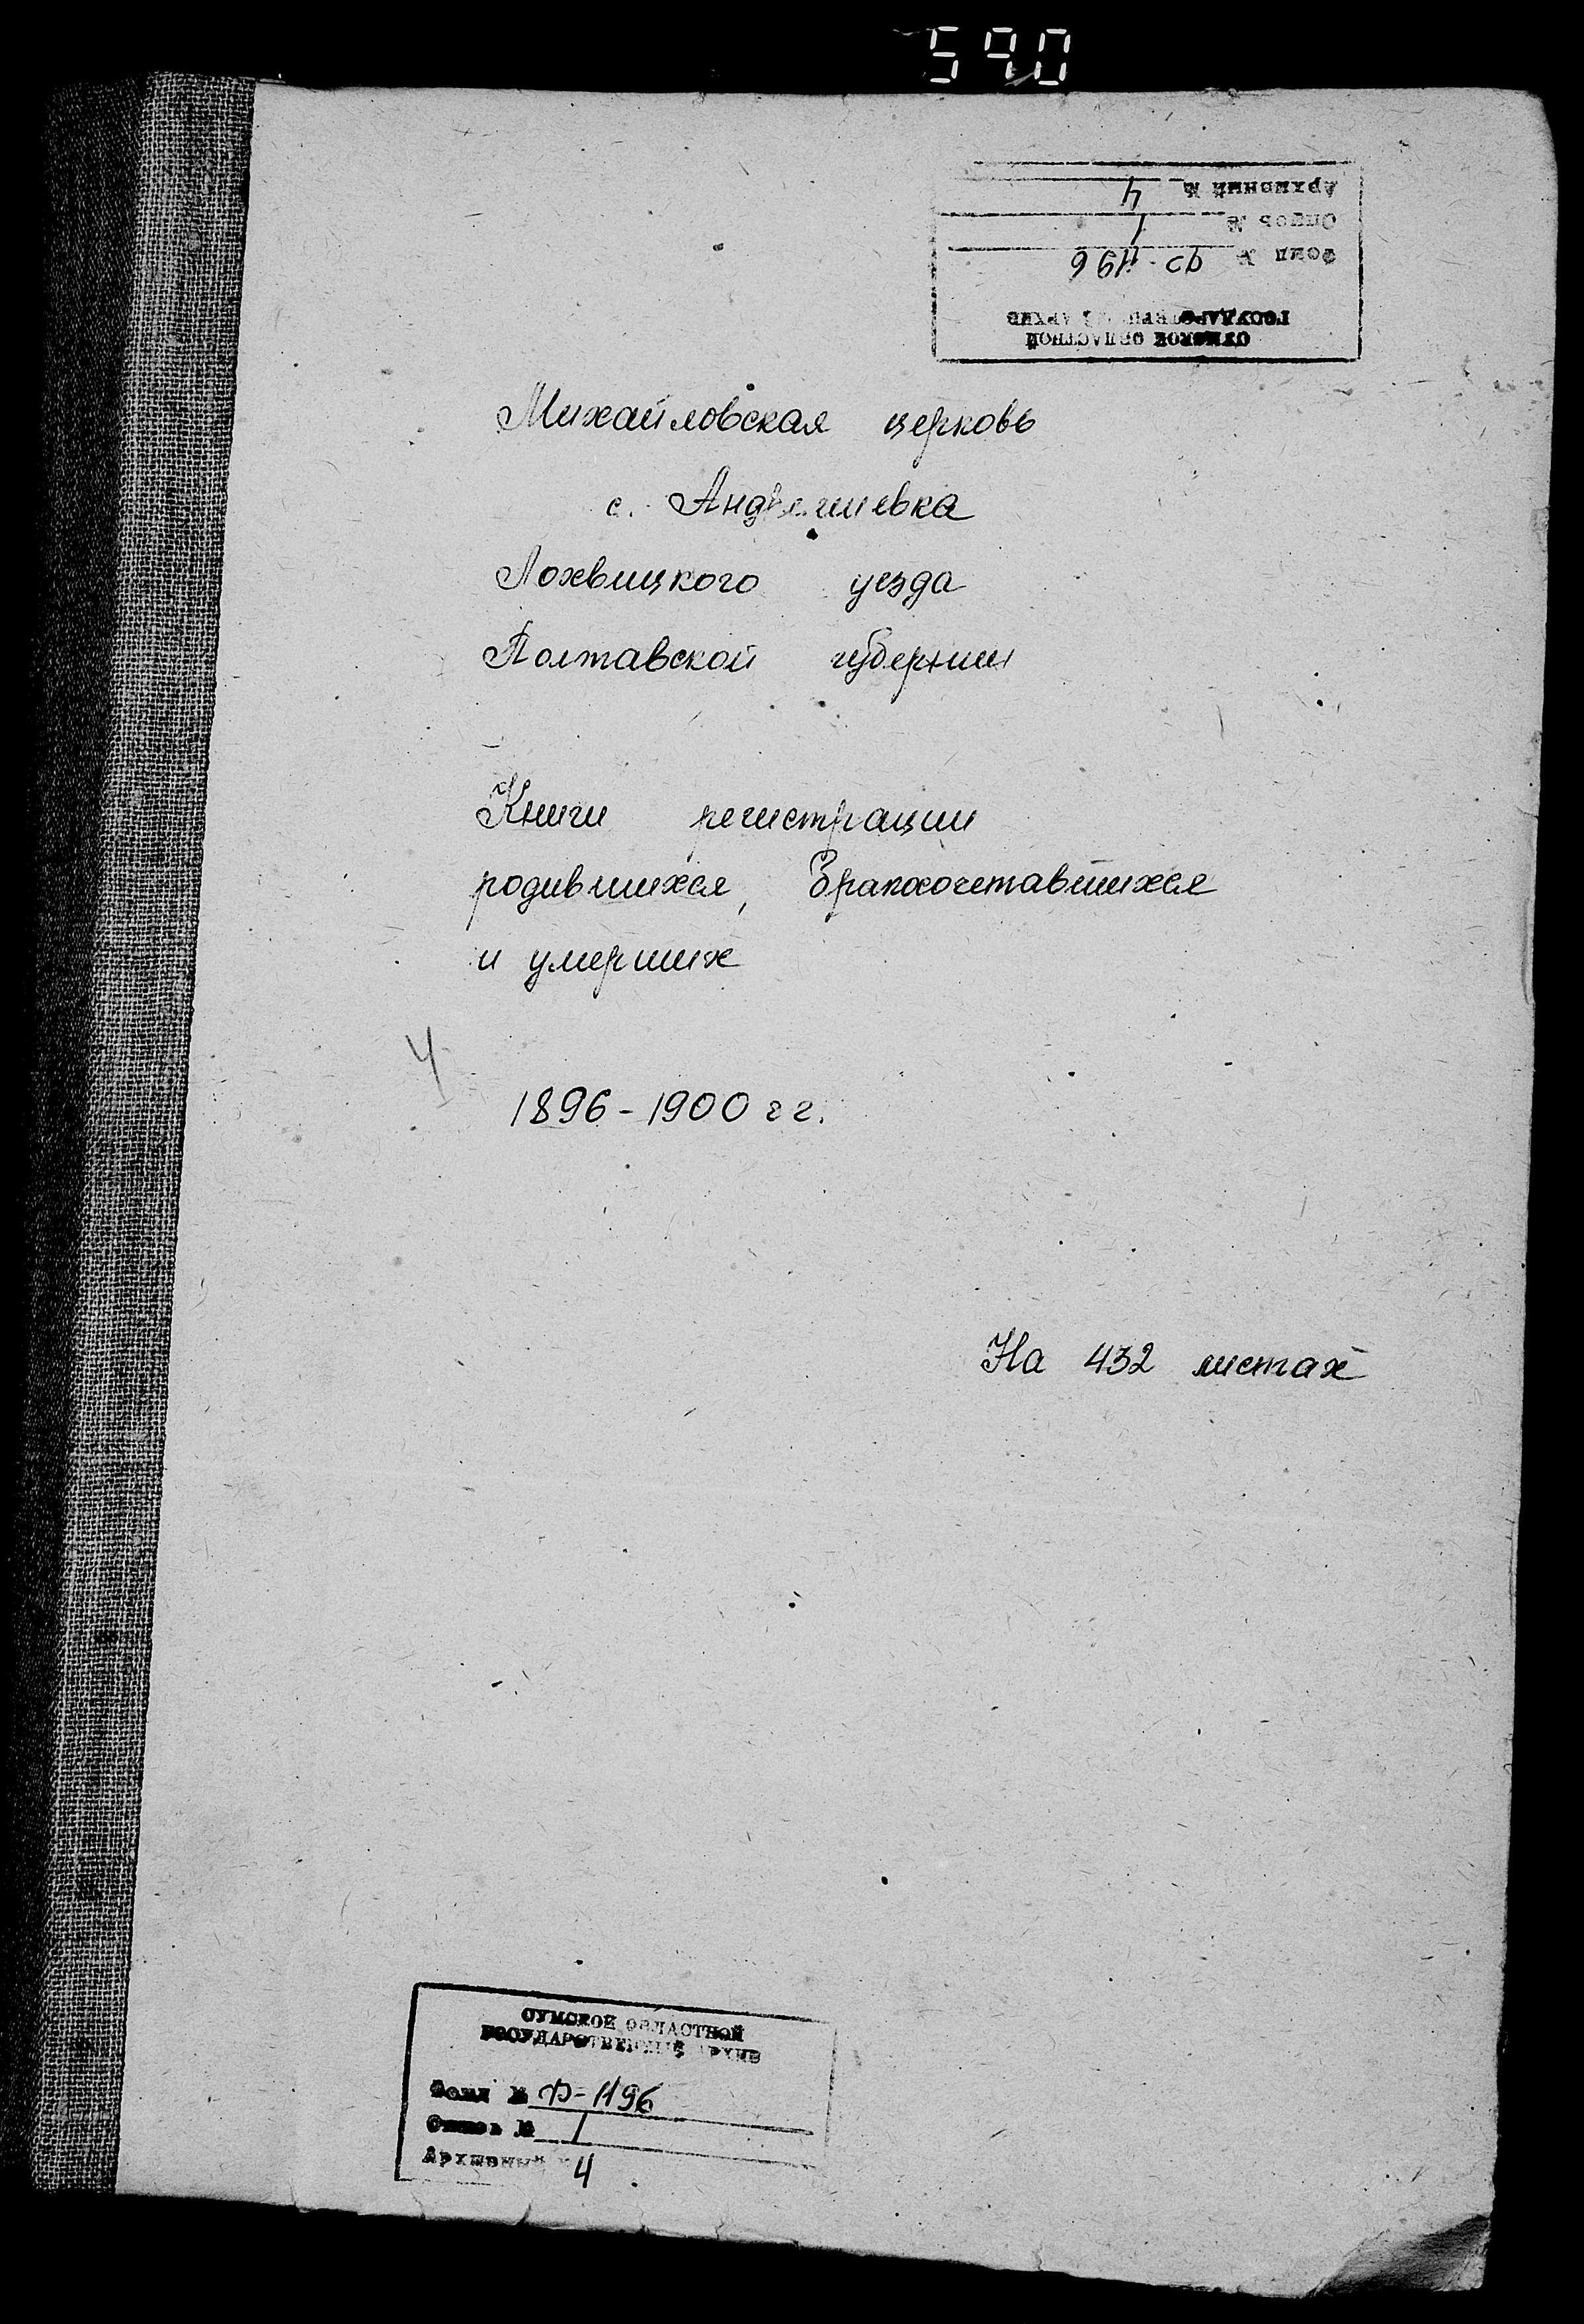 590
Архивный № 4
Опись № 1
Фонд № Ф-1196
ГОСУДАРСТВЕННЫЙ АРХИВ
СУМСКОЙ ОБЛАСТНОЙ
Михайловская церковь
с. Андреяшевка
Лохвицкого уезда
Полтавской губернии
Книги регистрации
родившихся, бракосочетавшихся
и умерших
4
1896-1900 гг.
На 432 листах
СУМСКОЙ ОБЛАСТНОЙ
ГОСУДАРСТВЕННЫЙ АРХИВ
Фонд № Ф-1196
Опись № 1
Архивный № 4